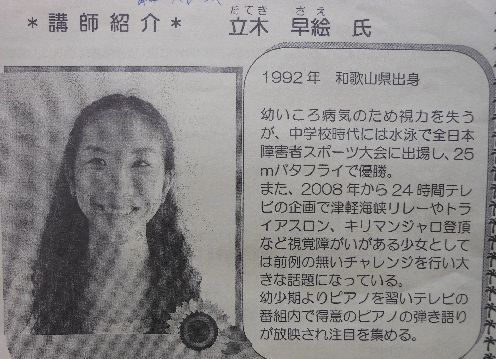 ＊講師紹介＊ 立木 早絵 氏
たてき さえ
1992年 和歌山県出身
幼いころ病気のため視力を失う
が、中学校時代には水泳で全日本
障害者スポーツ大会に出場し、25
mバタフライで優勝。
また、2008年から24時間テレ
ビの企画で津軽海峡リレーやトラ
イアスロン、キリマンジャロ登頂
など視覚障がいがある少女として
は前例の無いチャレンジを行い大
きな話題になっている。
幼少期よりピアノを習いテレビの
番組内で得意のピアノの弾き語り
が放映され注目を集める。